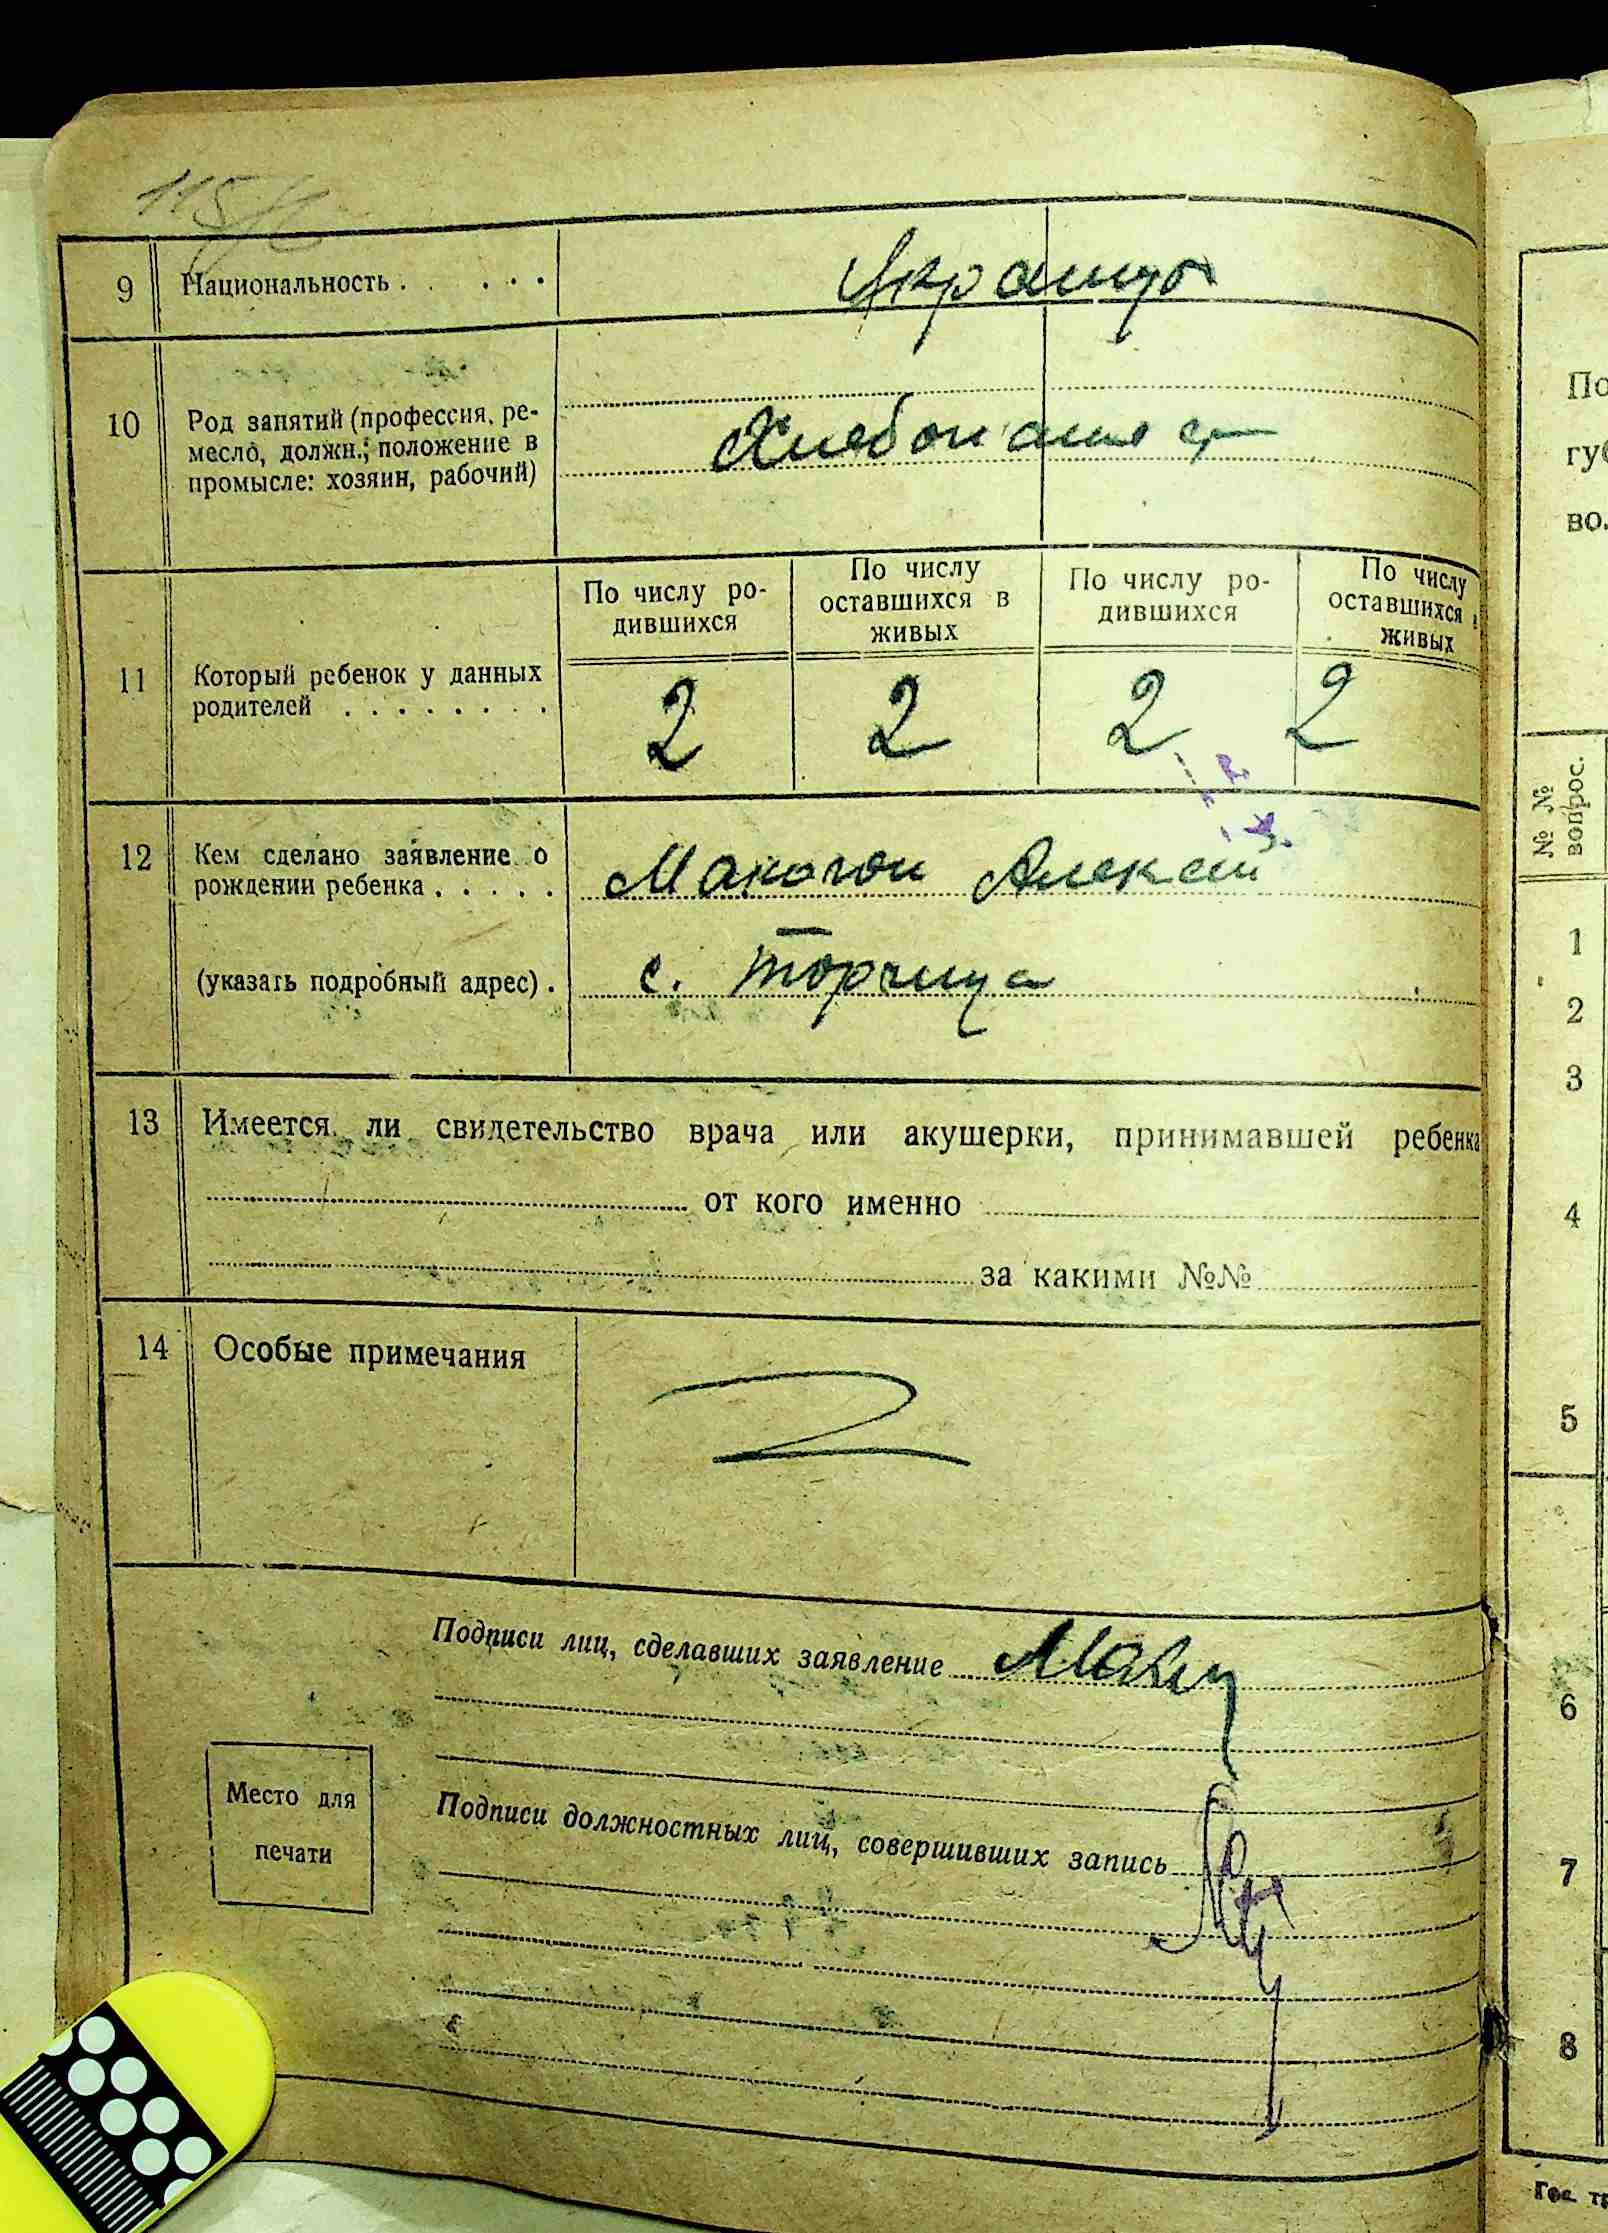 115
9 Национальность . . . . . Украинцы
10 Род занятий (профессия, ре-
месло, должн.; положение в
промысле: хозяин, рабочий)
Хлебопашец
По числу ро-
дившихся
По числу
оставшихся в
живых
По числу ро-
дившихся
По числу
оставшихся в
живых
11 Который ребенок у данных
родителей . . . . . . . .
2 2 2 2
12 Кем сделано заявление о
рождении ребенка . . . . .
Макогон Алексей
(указать подробный адрес) . с. Торчица
13 Имеется ли свидетельство врача или акушерки, принимавшей ребенка
от кого именно
за какими №№
14 Особые примечания
Подписи лиц, сделавших заявление
Место для
печати
Подписи должностных лиц, совершивших запись
По
гу
во.
№ №
вопрос.
1
2
3
4
5
6
7
8
Гос.